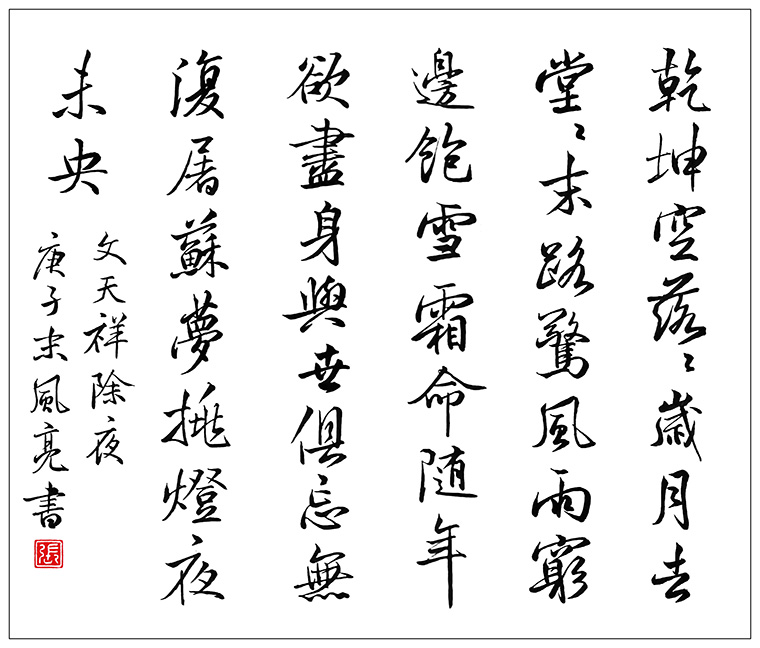 乾坤空落〻歲月去
堂〻末路驚風雨窮
邊飽雪霜命隨年
欲盡身與世俱忘無
復屠蘇夢挑燈夜
未央
文天祥除夜
庚子末風亮書
張